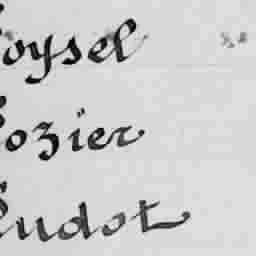 Loysel
Lozier
Ludot